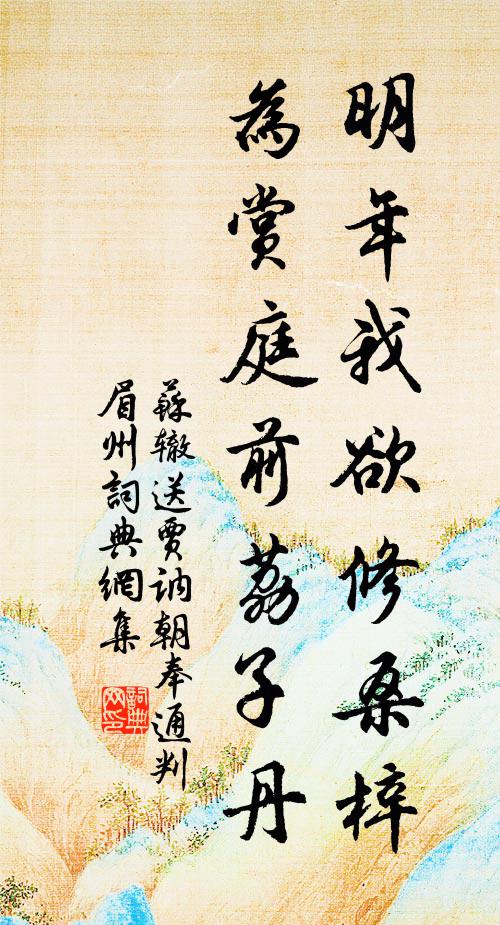 明年我欲修桑梓
為賞庭前荔子丹
蘇轍送賈訥朝奉通判
眉州詞典網集
詞典网印